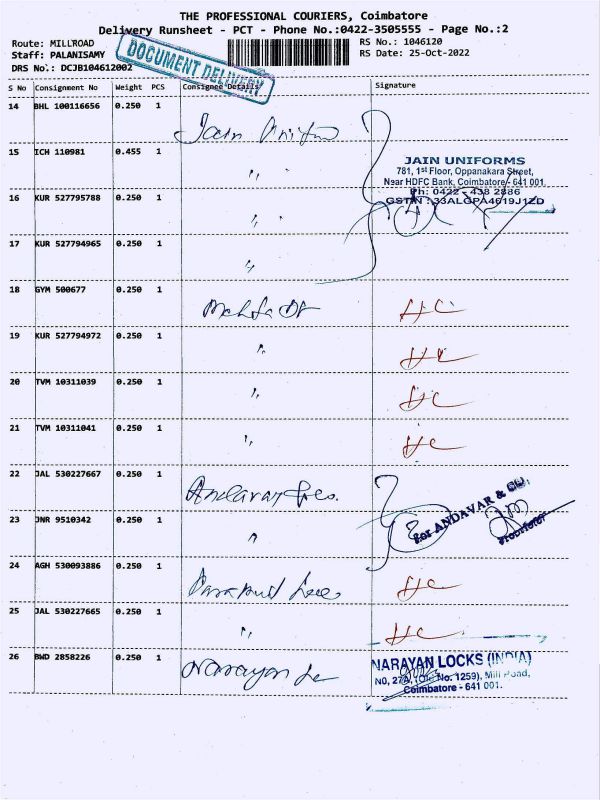 THE PROFESSIONAL COURIERS, Coimbatore
Delivery Runsheet - PCT - Phone No.:0422-3505555 - Page No.:2
Route: MILLROAD
Staff: PALANISAMY
DRS No.: DCJB104612002
DOCUMENT DELIVERY
RS No.: 1046120
RS Date: 25-Oct-2022
S No Consignment No Weight PCS Consignee Details Signature
14 BHL 100116656 0.250 1 Jain
15 ICH 110981 0.455 1 "
JAIN UNIFORMS
781, 1st Floor, Oppanakara Street,
Near HDFC Bank, Coimbatore - 641 001.
Ph: 0422 - 438 2886
GSTIN : 33ALGPA4619J1ZD
16 KUR 527795788 0.250 1 "
17 KUR 527794965 0.250 1 "
18 GYM 500677 0.250 1
19 KUR 527794972 0.250 1 "
20 TVM 10311039 0.250 1 "
21 TVM 10311041 0.250 1 "
22 JAL 530227667 0.250 1 Andavar
for ANDAVAR & CO.
Proprietor
23 JNR 9510342 0.250 1 "
24 AGH 530093886 0.250 1
25 JAL 530227665 0.250 1 "
26 BWD 2858226 0.250 1 Narayan
NARAYAN LOCKS (INDIA)
NO, 27A, (Old No. 1259), Mill Road,
Coimbatore - 641 001.